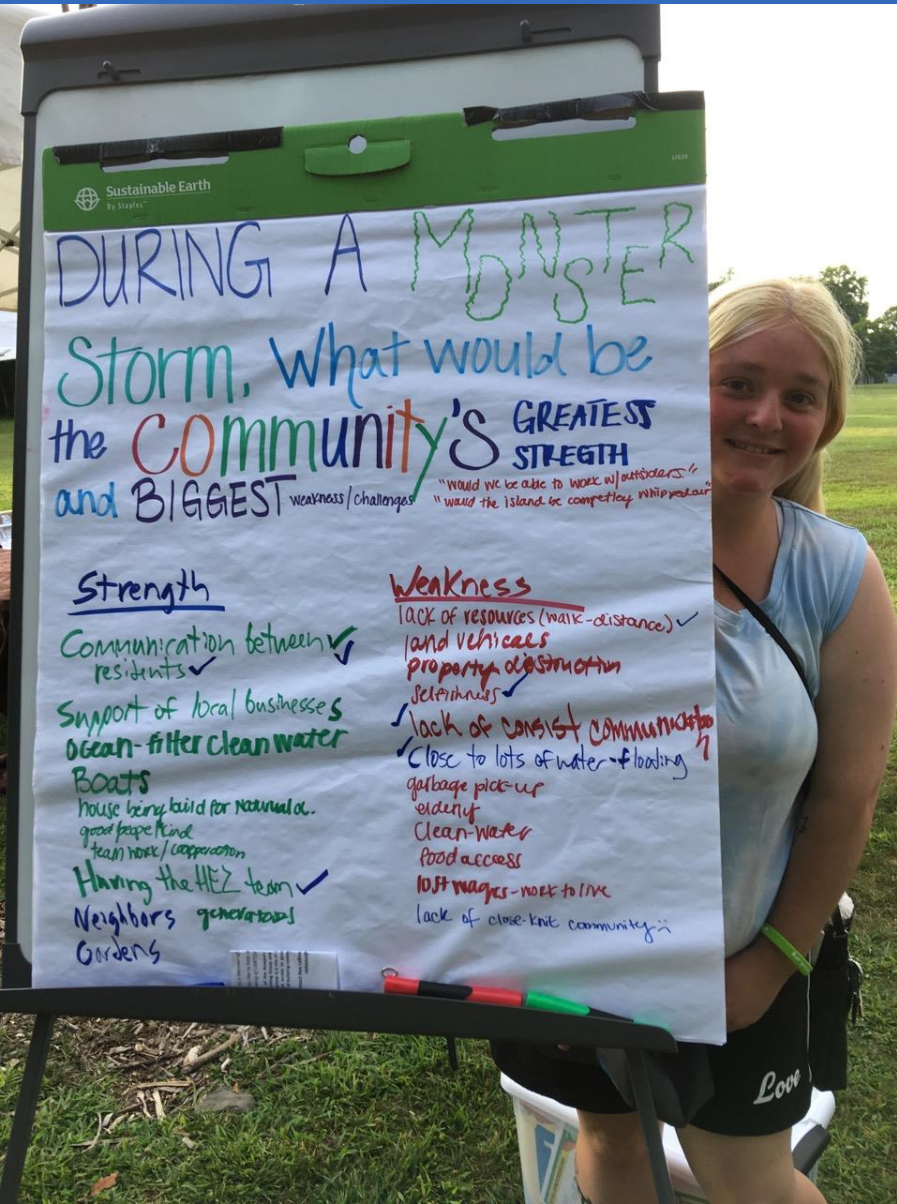 Sustainable Earth
By Staples
DURING A MONSTER
Storm, What would be
the Community's GREATESS
STREGTH
and BIGGEST weakness/challenges
"would we be able to work w/outsiders"
"would the island be competley whipped out"
Strength
Communication between
residents
Support of local businesses
ocean-filter clean water
Boats
house being build for natural d.
good people/kind
team work/cooperation
Having the HEZ team
Neighbors generators
Gardens
Weakness
lack of resources (walk-distance)
land vehicles
property destruction
selfishness
lack of consist communication
Close to lots of water flooding
garbage pick-up
elderly
Clean-water
Food access
lost wages-work to live
lack of close-knit community
Love